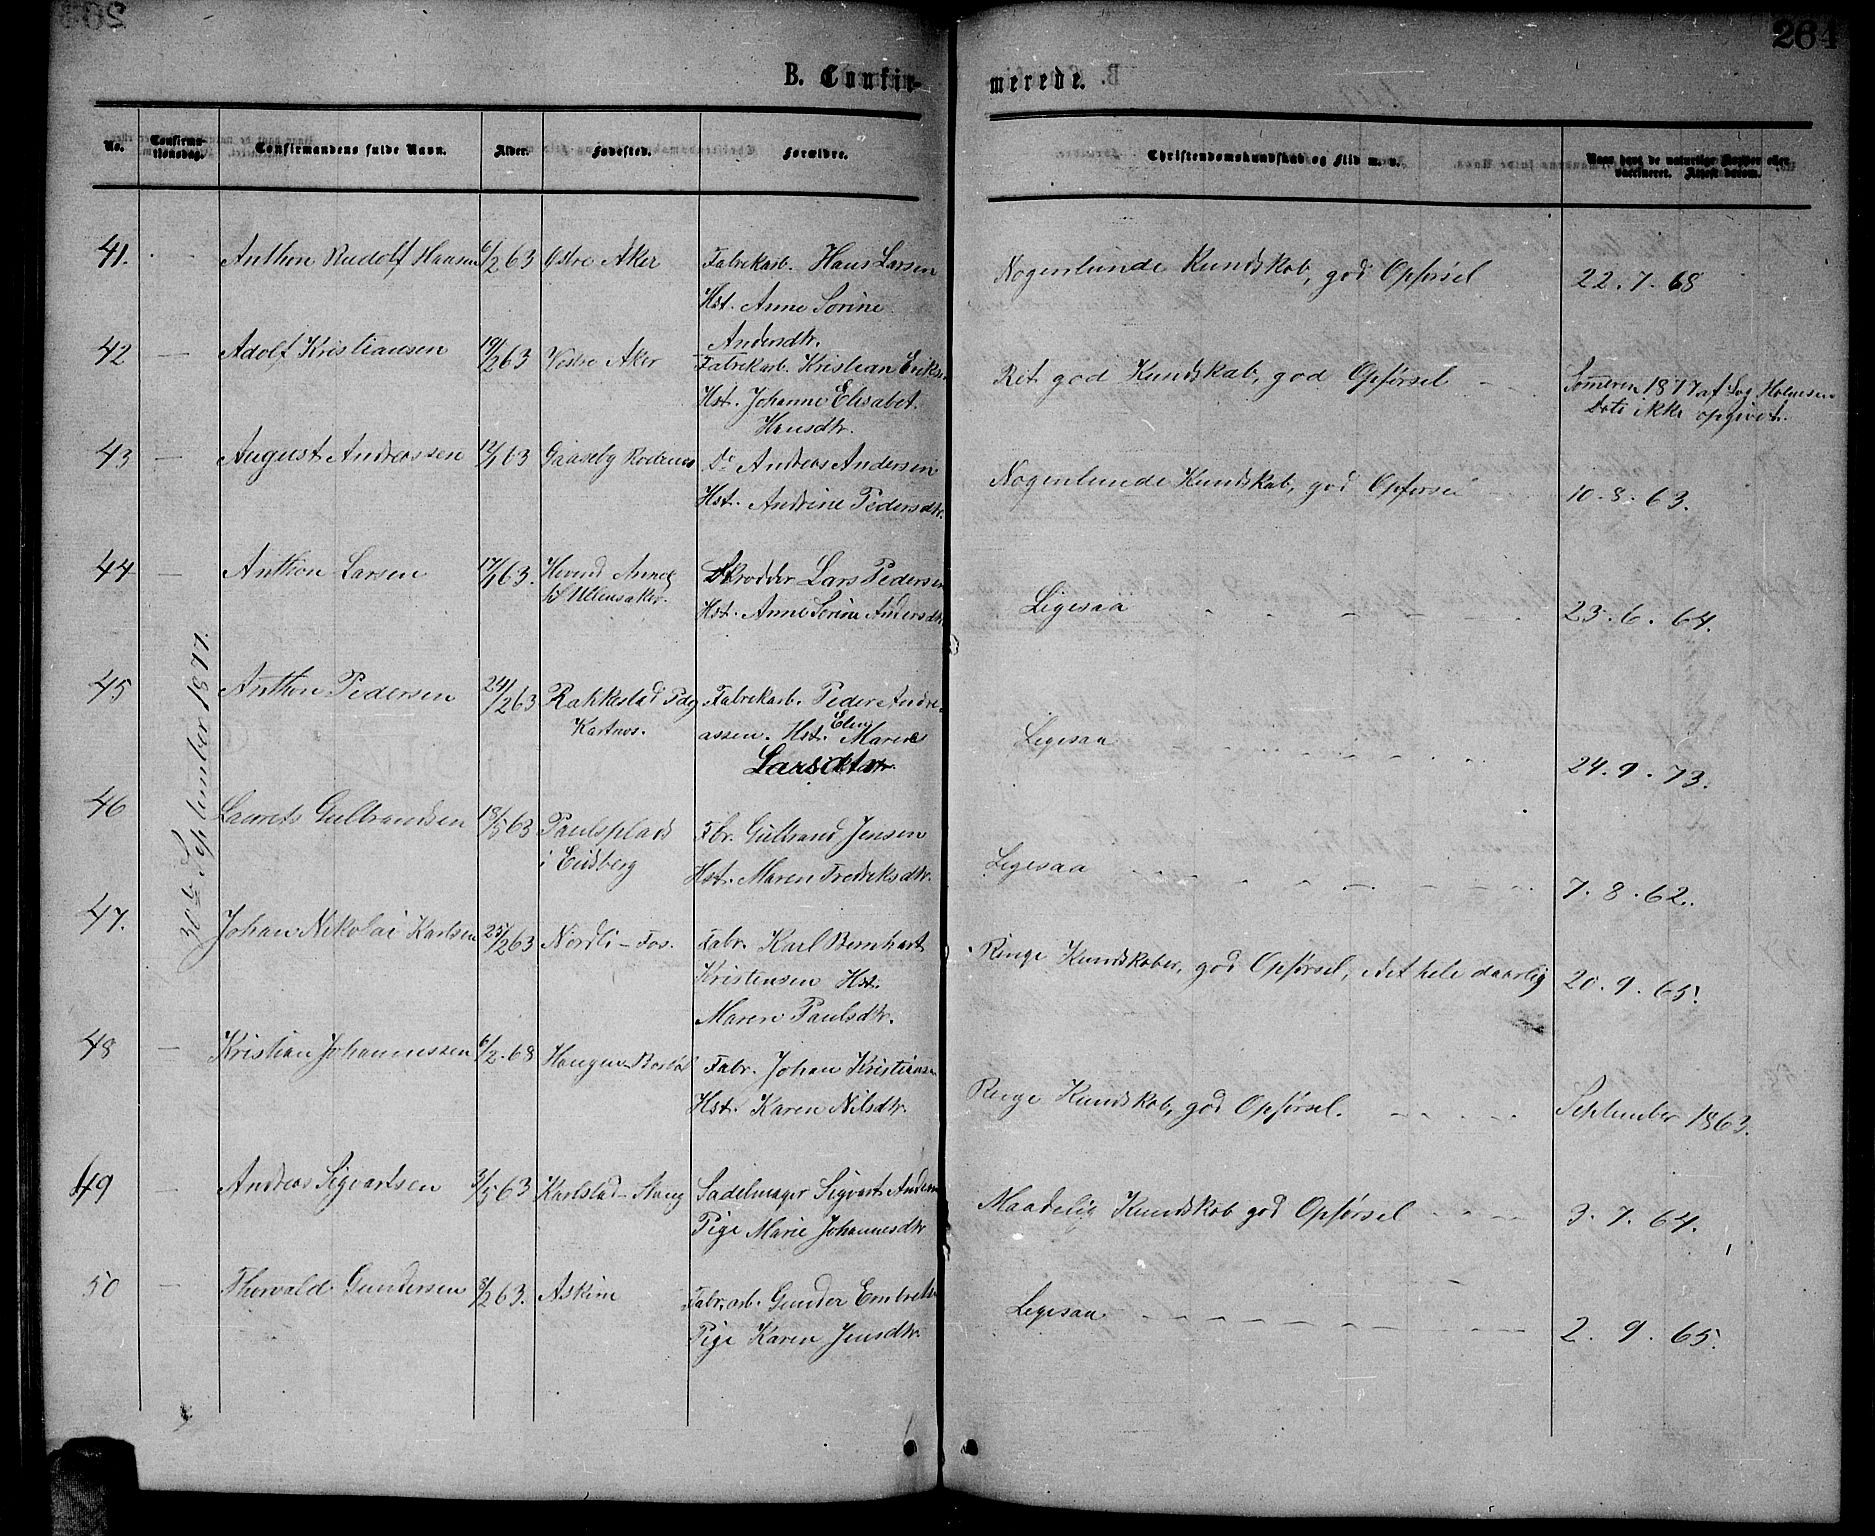 264
B. Confir-
merede.
No. Confirma- Confirmandens fulde Navn. Alder. Fødested. Forældre. Christendomskundskab og Flid m. v. Naar havt de naturlige Kopper eller
tionsdag. vaccineret. Attest datum.
30te September 1877.
41. Anthon Rudolf Hansen 6/2 63 Østre Aker Fabrikarb. Hans Larsen Nogenlunde Kundskab, god Opførsel 22.7.68
Hst. Anne Sorine
Andersdtr.
42 — Adolf Kristiansen 19/2 63 Vestre Aker Fabrikarb. Kristian Eriksen Ret god Kundskab, god Opførsel Sommeren 1877 af Log Holmsen
Hst. Johanne Elisabet Dato ikke opgivet.
Hansdtr.
43 — August Andreassen 12/1 63 Do Andreas Andersen Nogenlunde Kundskab, god Opførsel 10.8.63.
Hst. Andrine Pedersdtr.
44 — Anthon Larsen 17/1 63. Skrædder Lars Pedersen Ligesaa 23.6.64.
til Ullensaker. Hst. Anne Sorine Andersdtr.
45 Anthon Pedersen 24/2 63 Rakkestad Pdg Fabrikarb. Peder Andre-
assen. Hst. Elen Maren Ligesaa 24.9.73.
Larsdtr.
46 Laurets Gulbrandsen 18/5 63 Paulsplads Fbr. Gulbrand Jensen Ligesaa 7.8.62.
i Eidsberg Hst. Maren Fredriksdtr.
47. Johan Nikolai Karlsen 25/2 63 Nordli – Fos. Fabr. Karl Bernhart Ringe Kundskaber, god Opførsel, det hele daarlig 20.9.65.
Kristensen Hst.
Maren Paulsdtr.
48 — Kristian Johannessen 6/2.68 Fabr. Johan Kristiansen Ringe Kundskab, god Opførsel. September 1863.
Hst. Karen Nilsdtr.
49 — Andreas Sigvartsen 3/5 63 Karlstad – Stang Sadelmager Sigvart Andersen Maadelig Kundskab god Opførsel 3.7.64.
Pige Marie Johannesdtr
50 — Thorvald Gundersen 8/2 63. Askim Fabr.arb. Gunder Embretsen Ligesaa 2.9.65.
Pige Karen Jensdtr.